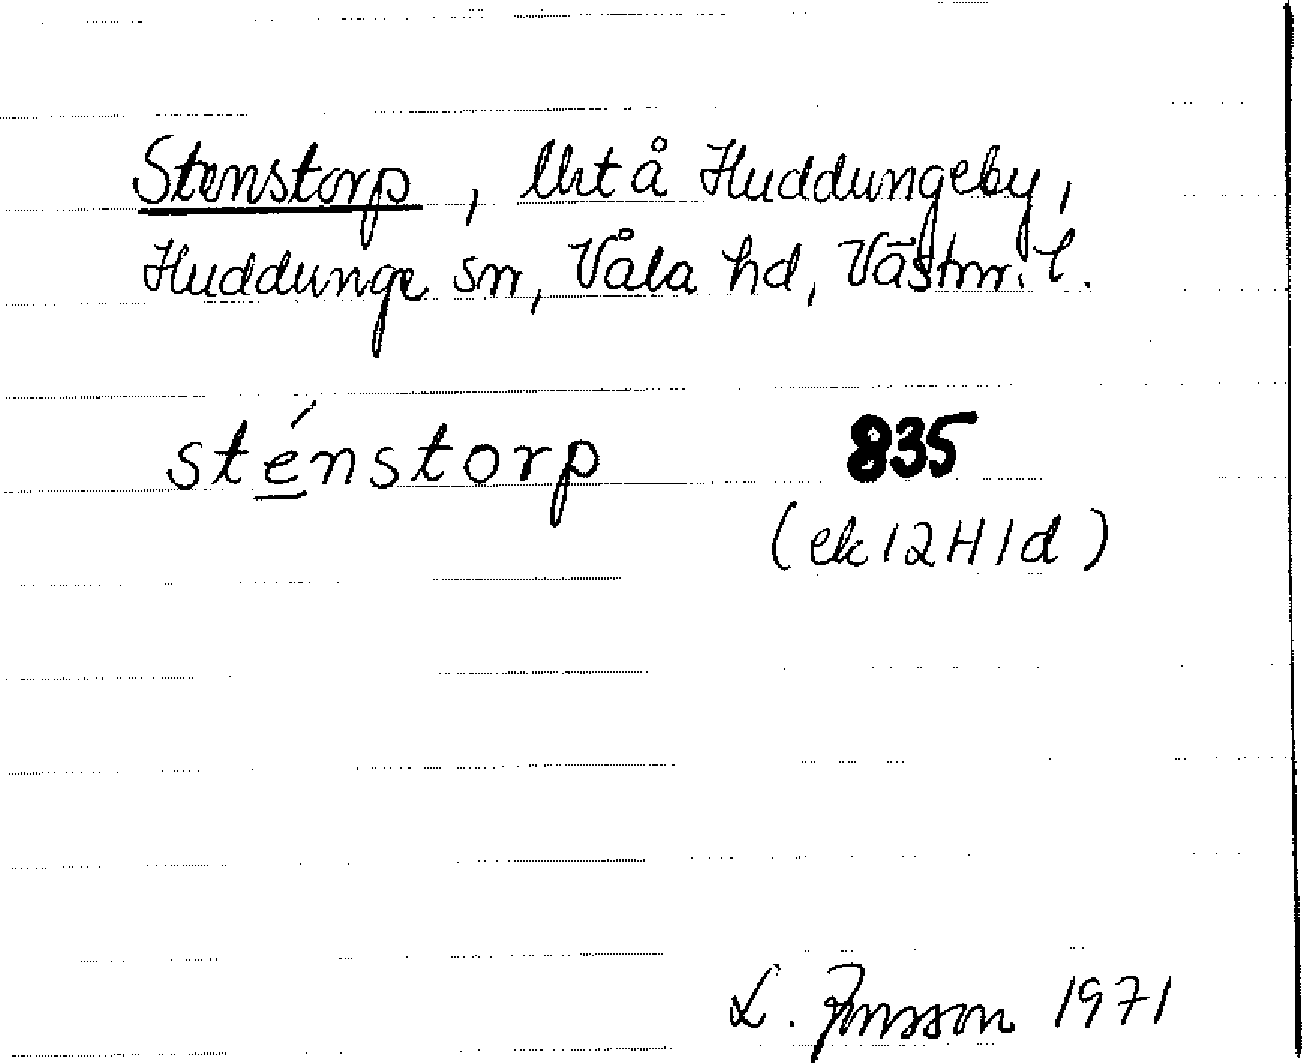 Stenstorp, lht å Huddungeby,
Huddunge sn, Våla hd, Västm. l.
sténstorp 835
(ek 12H1d)
L. Jonsson 1971